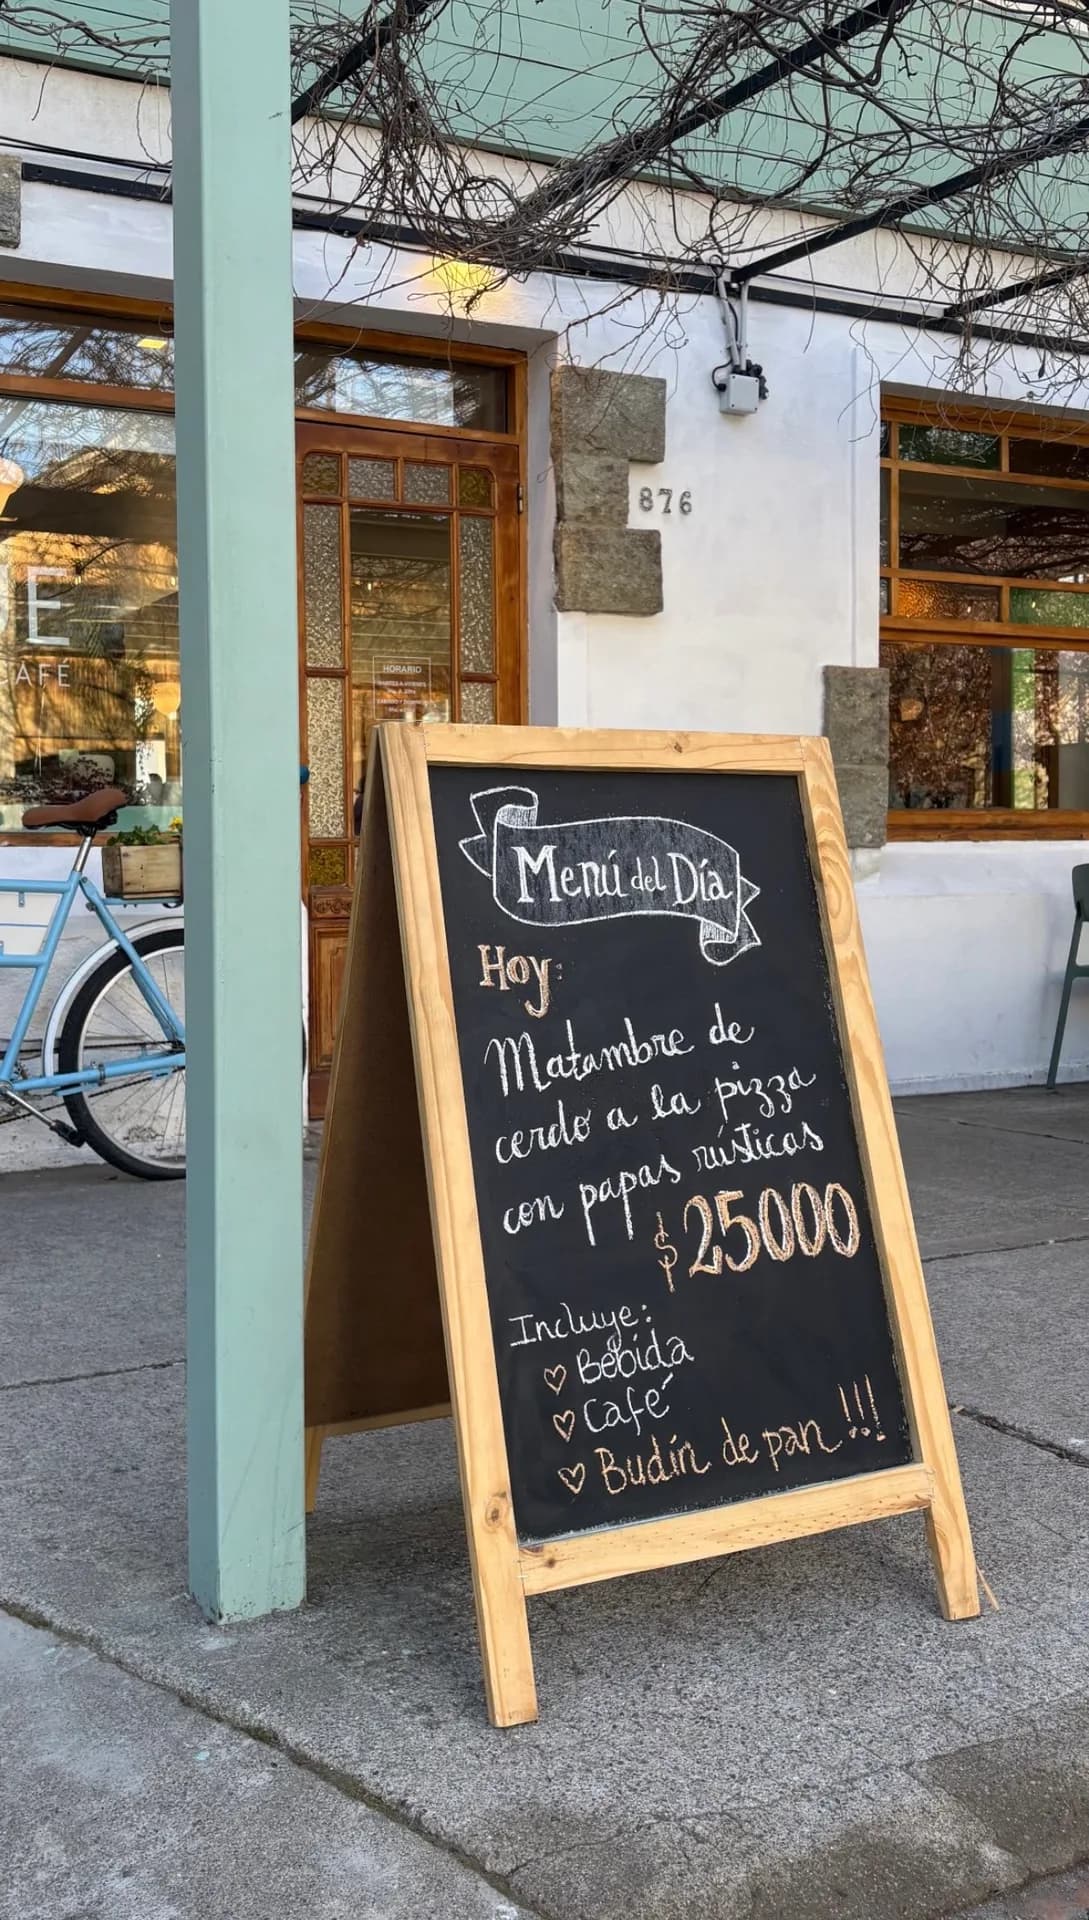 E
CAFÉ
876
HORARIO
Menú del Día
Hoy:
Matambre de
cerdo a la pizza
con papas rústicas
$25000
Incluye:
♡ Bebida
♡ Café
♡ Budín de pan !!!